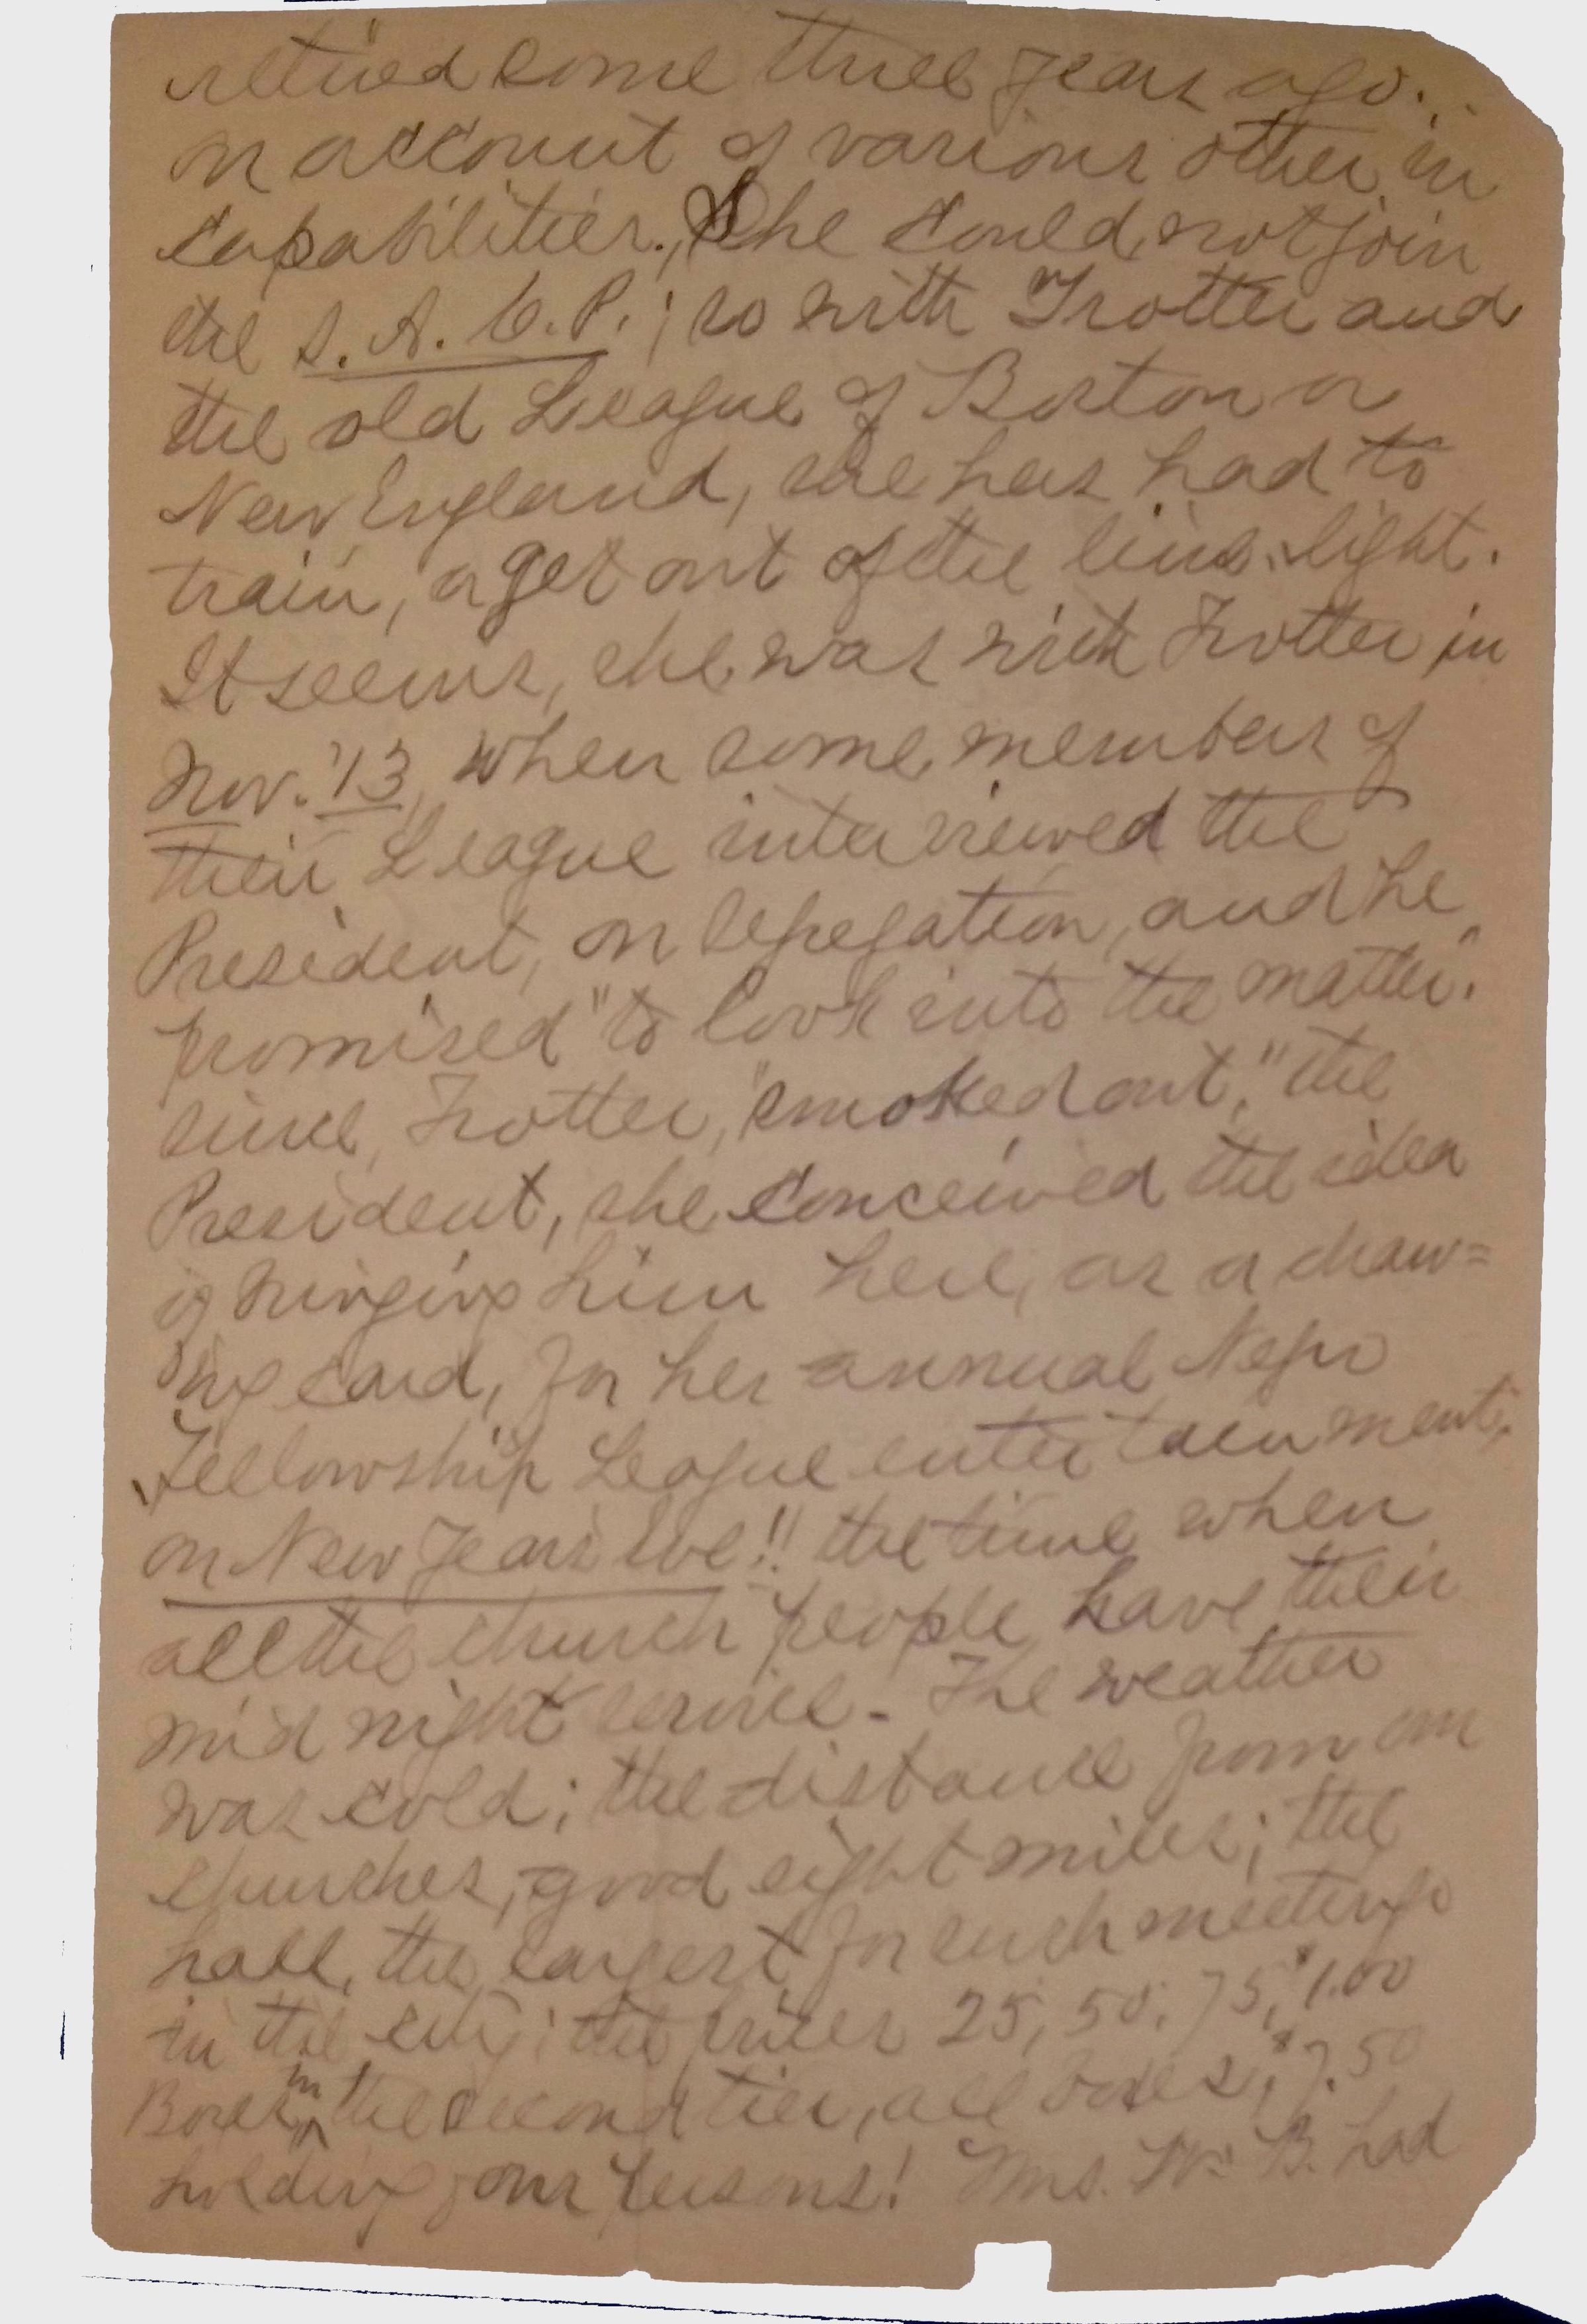 retired some three years ago.
on account of various other in
capabilities. She could not join
the S. A. C. P.; so with Trotter and
the old League of Boston or
New England, she has had to
train, or get out of the lime light.
It seems, she was with Trotter in
Nov. '13, when some members of
their League interviewed the
President, on Segregation, and he
promised "to look into the matter."
since, Trotter, "smoked out," the
President, she conceived the idea
of bringing him here, as a draw=
ing card, for her annual Negro
Fellowship League entertainment,
on New Years Eve!! the time when
all the church people have their
mid night service - The weather
was cold; the distance from our
churches, good eight miles; the
hall, the largest for such meetings
in the city; the prices 25, 50, 75, $1.00
Boxes in the second tier, all boxes, $7.50
holding four persons! Mrs. W. B. had